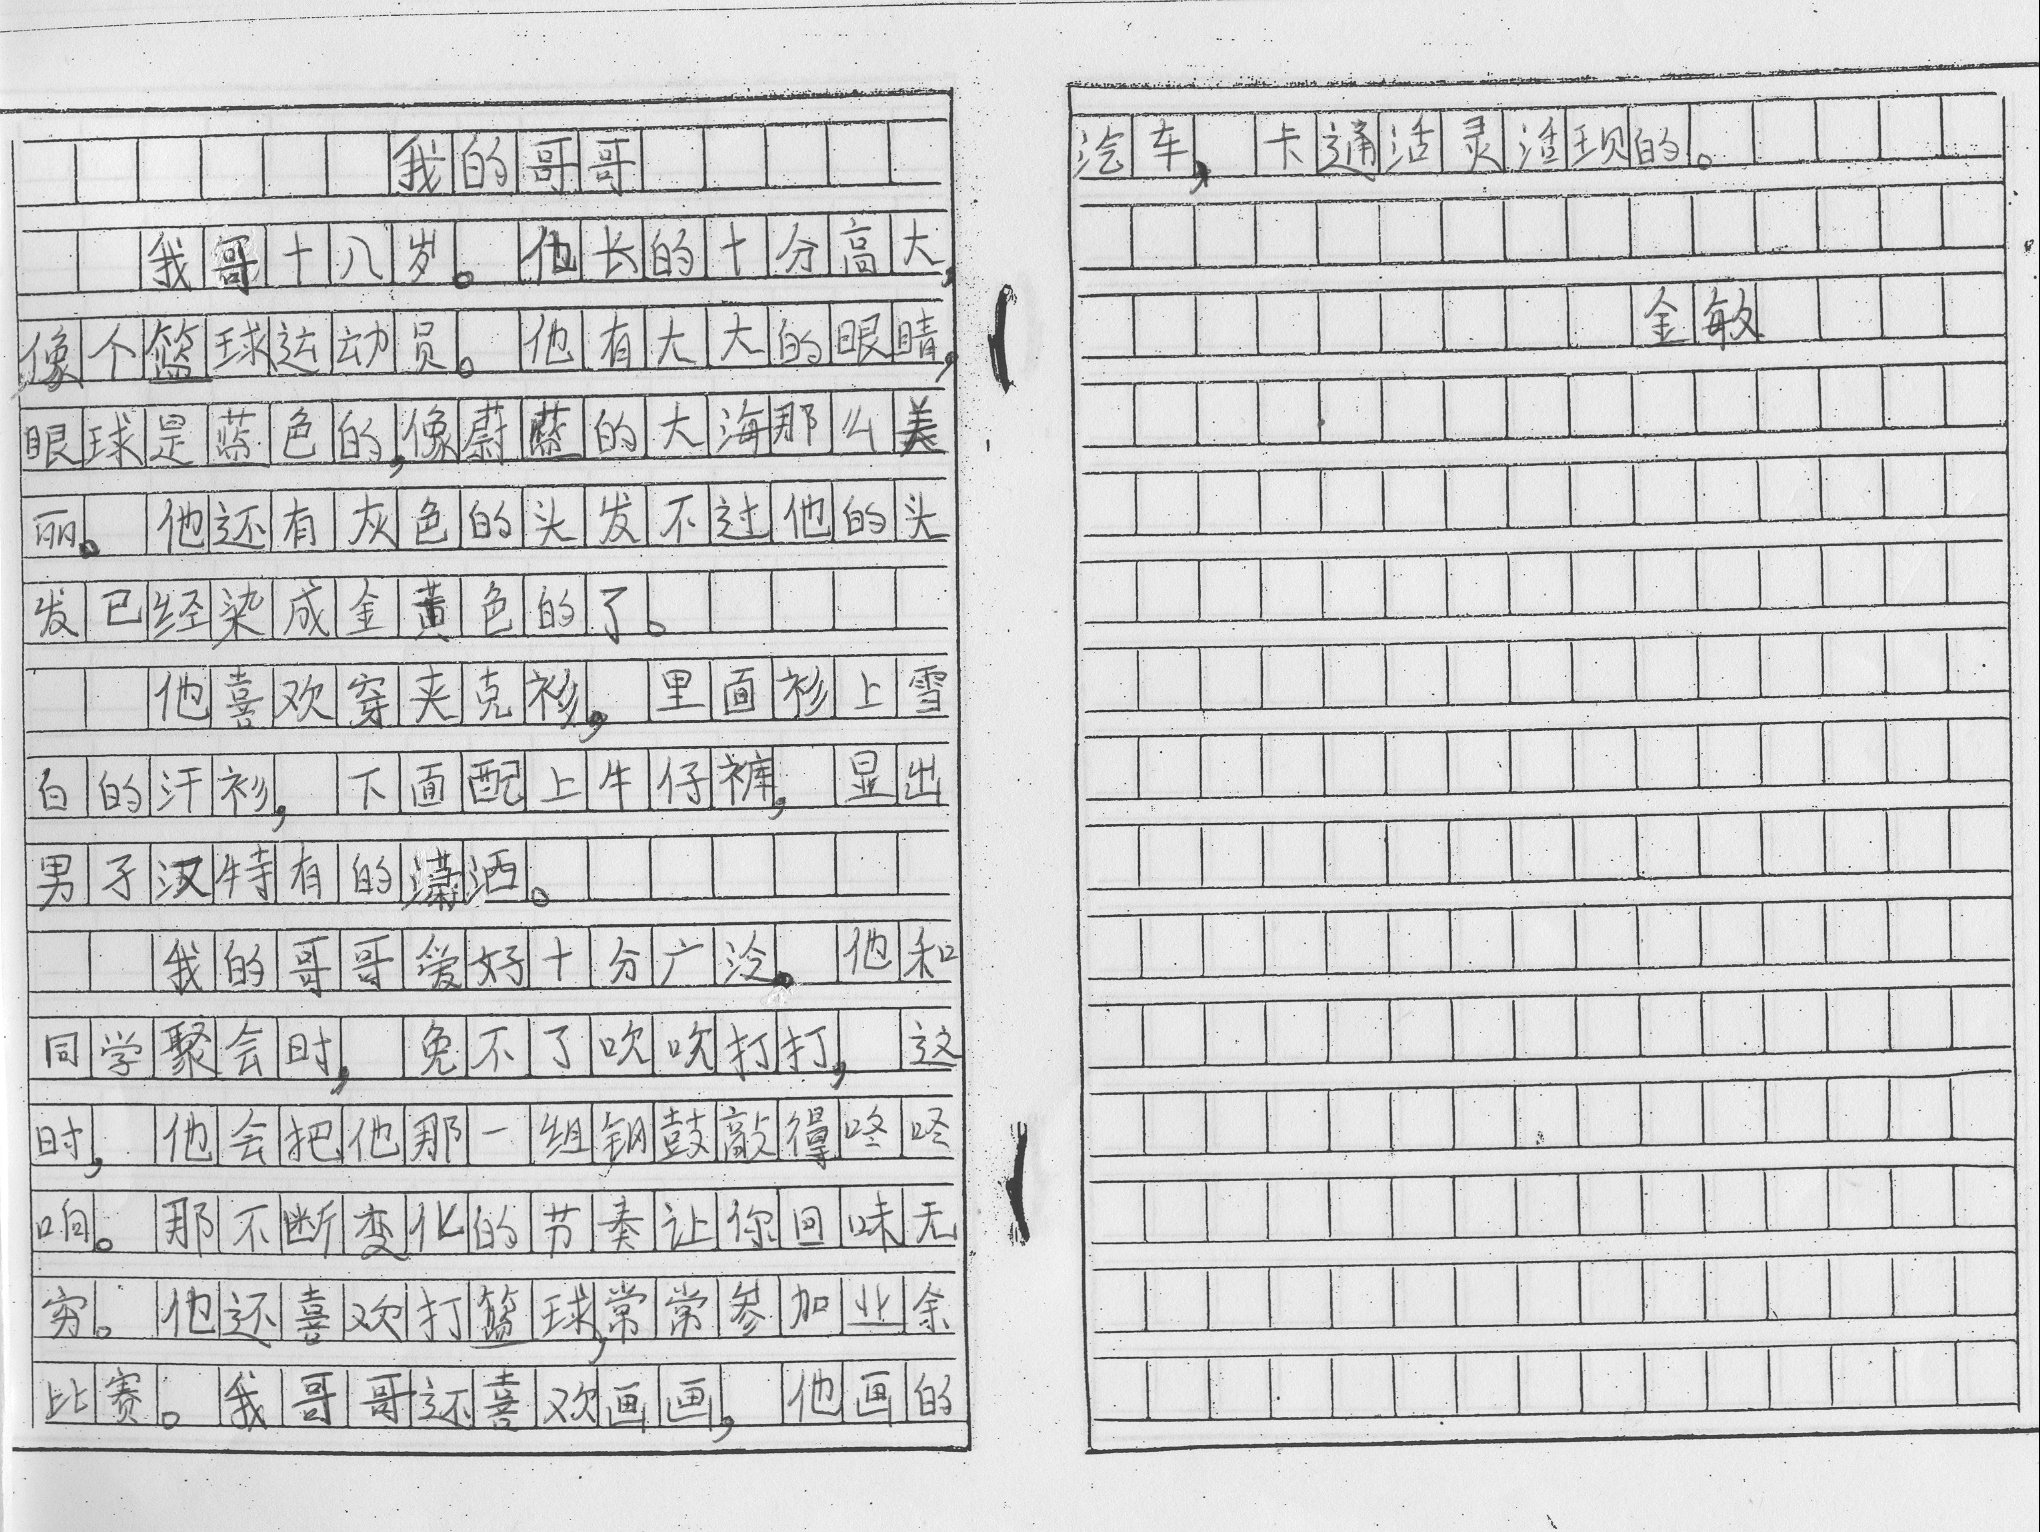 我的哥哥
我哥十八岁。他长的十分高大,
像个篮球运动员。他有大大的眼睛,
眼球是蓝色的,像蔚蓝的大海那么美
丽。他还有灰色的头发不过他的头
发已经染成金黄色的了。
他喜欢穿夹克衫,里面衫上雪
白的汗衫,下面配上牛仔裤,显出
男子汉特有的潇洒。
我的哥哥爱好十分广泛。他和
同学聚会时,免不了吹吹打打,这
时,他会把他那一组钢鼓敲得咚咚
响。那不断变化的节奏让你回味无
穷。他还喜欢打篮球,常常参加业余
比赛。我哥哥还喜欢画画,他画的
汽车,卡通活灵活现的。
金敏